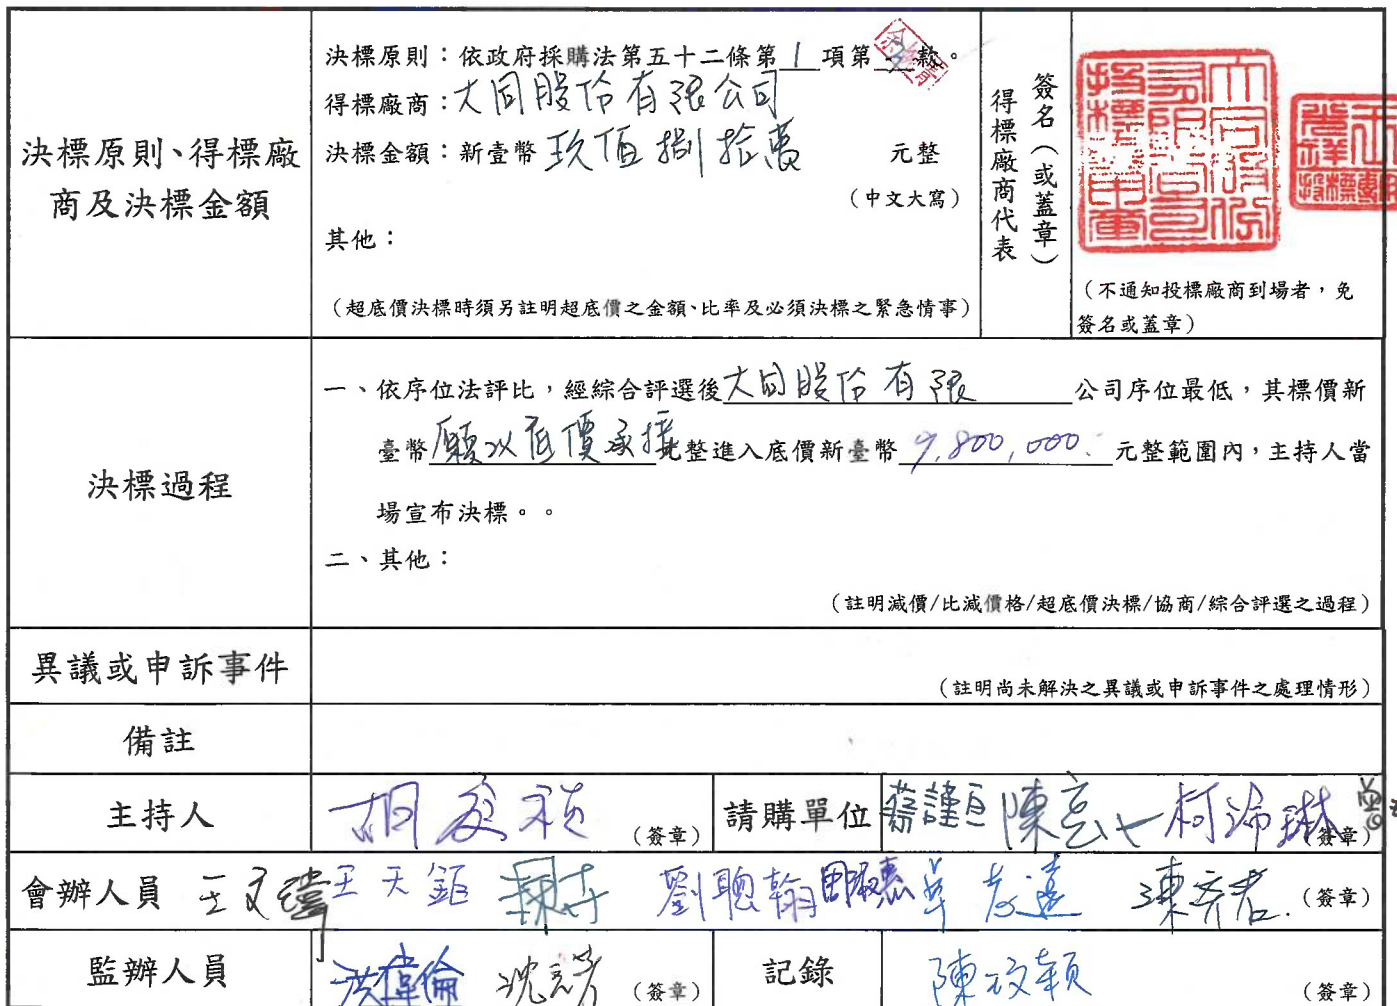 決標原則、得標廠
商及決標金額
決標原則：依政府採購法第五十二條第1項第 款。
得標廠商：大同股份有限公司
決標金額：新壹幣 玖佰捌拾萬 元整
（中文大寫）
其他：
（超底價決標時須另註明超底價之金額、比率及必須決標之緊急情事）
得標廠商代表
簽名（或蓋章）
（不通知投標廠商到場者，免
簽名或蓋章）
決標過程
一、依序位法評比，經綜合評選後大同股份有限公司序位最低，其標價新
臺幣願以底價承攬元整進入底價新臺幣9,800,000.元整範圍內，主持人當
場宣布決標。。
二、其他：
（註明減價/比減價格/超底價決標/協商/綜合評選之過程）
異議或申訴事件
（註明尚未解決之異議或申訴事件之處理情形）
備註
主持人 （簽章） 請購單位 （簽章）
會辦人員 王文瑋 王天鉅 劉聰翰 （簽章）
監辦人員 洪偉倫 （簽章） 記錄 （簽章）